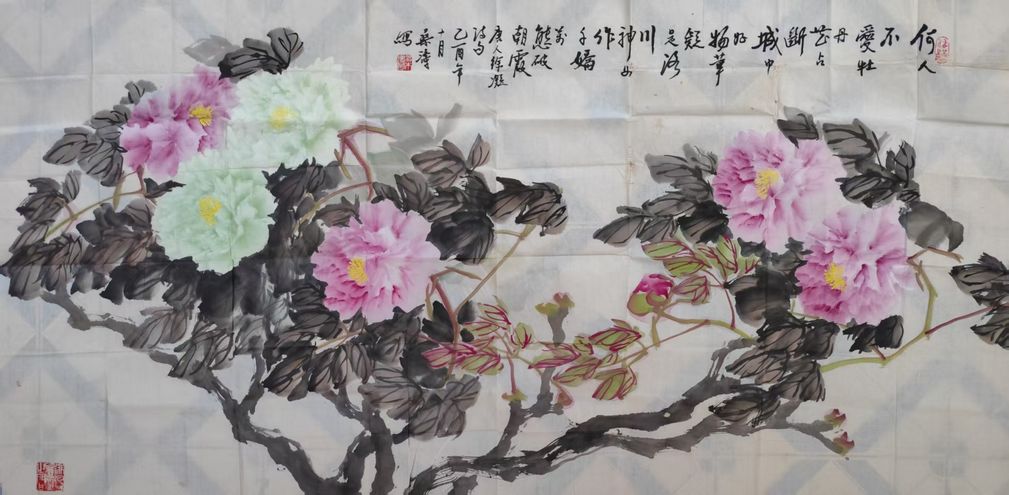 何人
不
愛牡
丹
花占
斷
城中
好
物華
疑
是洛
川
神女
作
千嬌
萬
態破
朝霞
唐人徐凝
詩句
乙酉年
十月
桑濤
寫